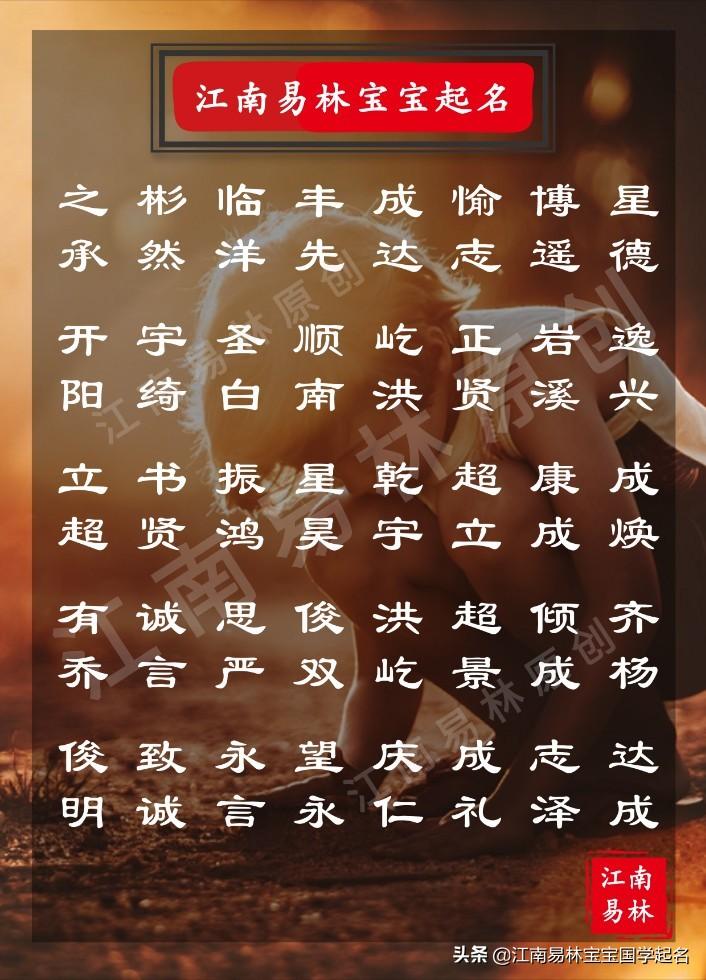 江南易林宝宝起名
之彬临丰成愉博星
承然洋先达志遥德
开宇圣顺屹正岩逸
阳绮白南洪贤溪兴
立书振星乾超康成
超贤鸿昊宇立成焕
有诚思俊洪超倾齐
乔言严双屹景成杨
俊致永望庆成志达
明诚言永仁礼泽成
江南易林原创
江南易林原创
江南易林原创
江南
易林
头条 @江南易林宝宝国学起名